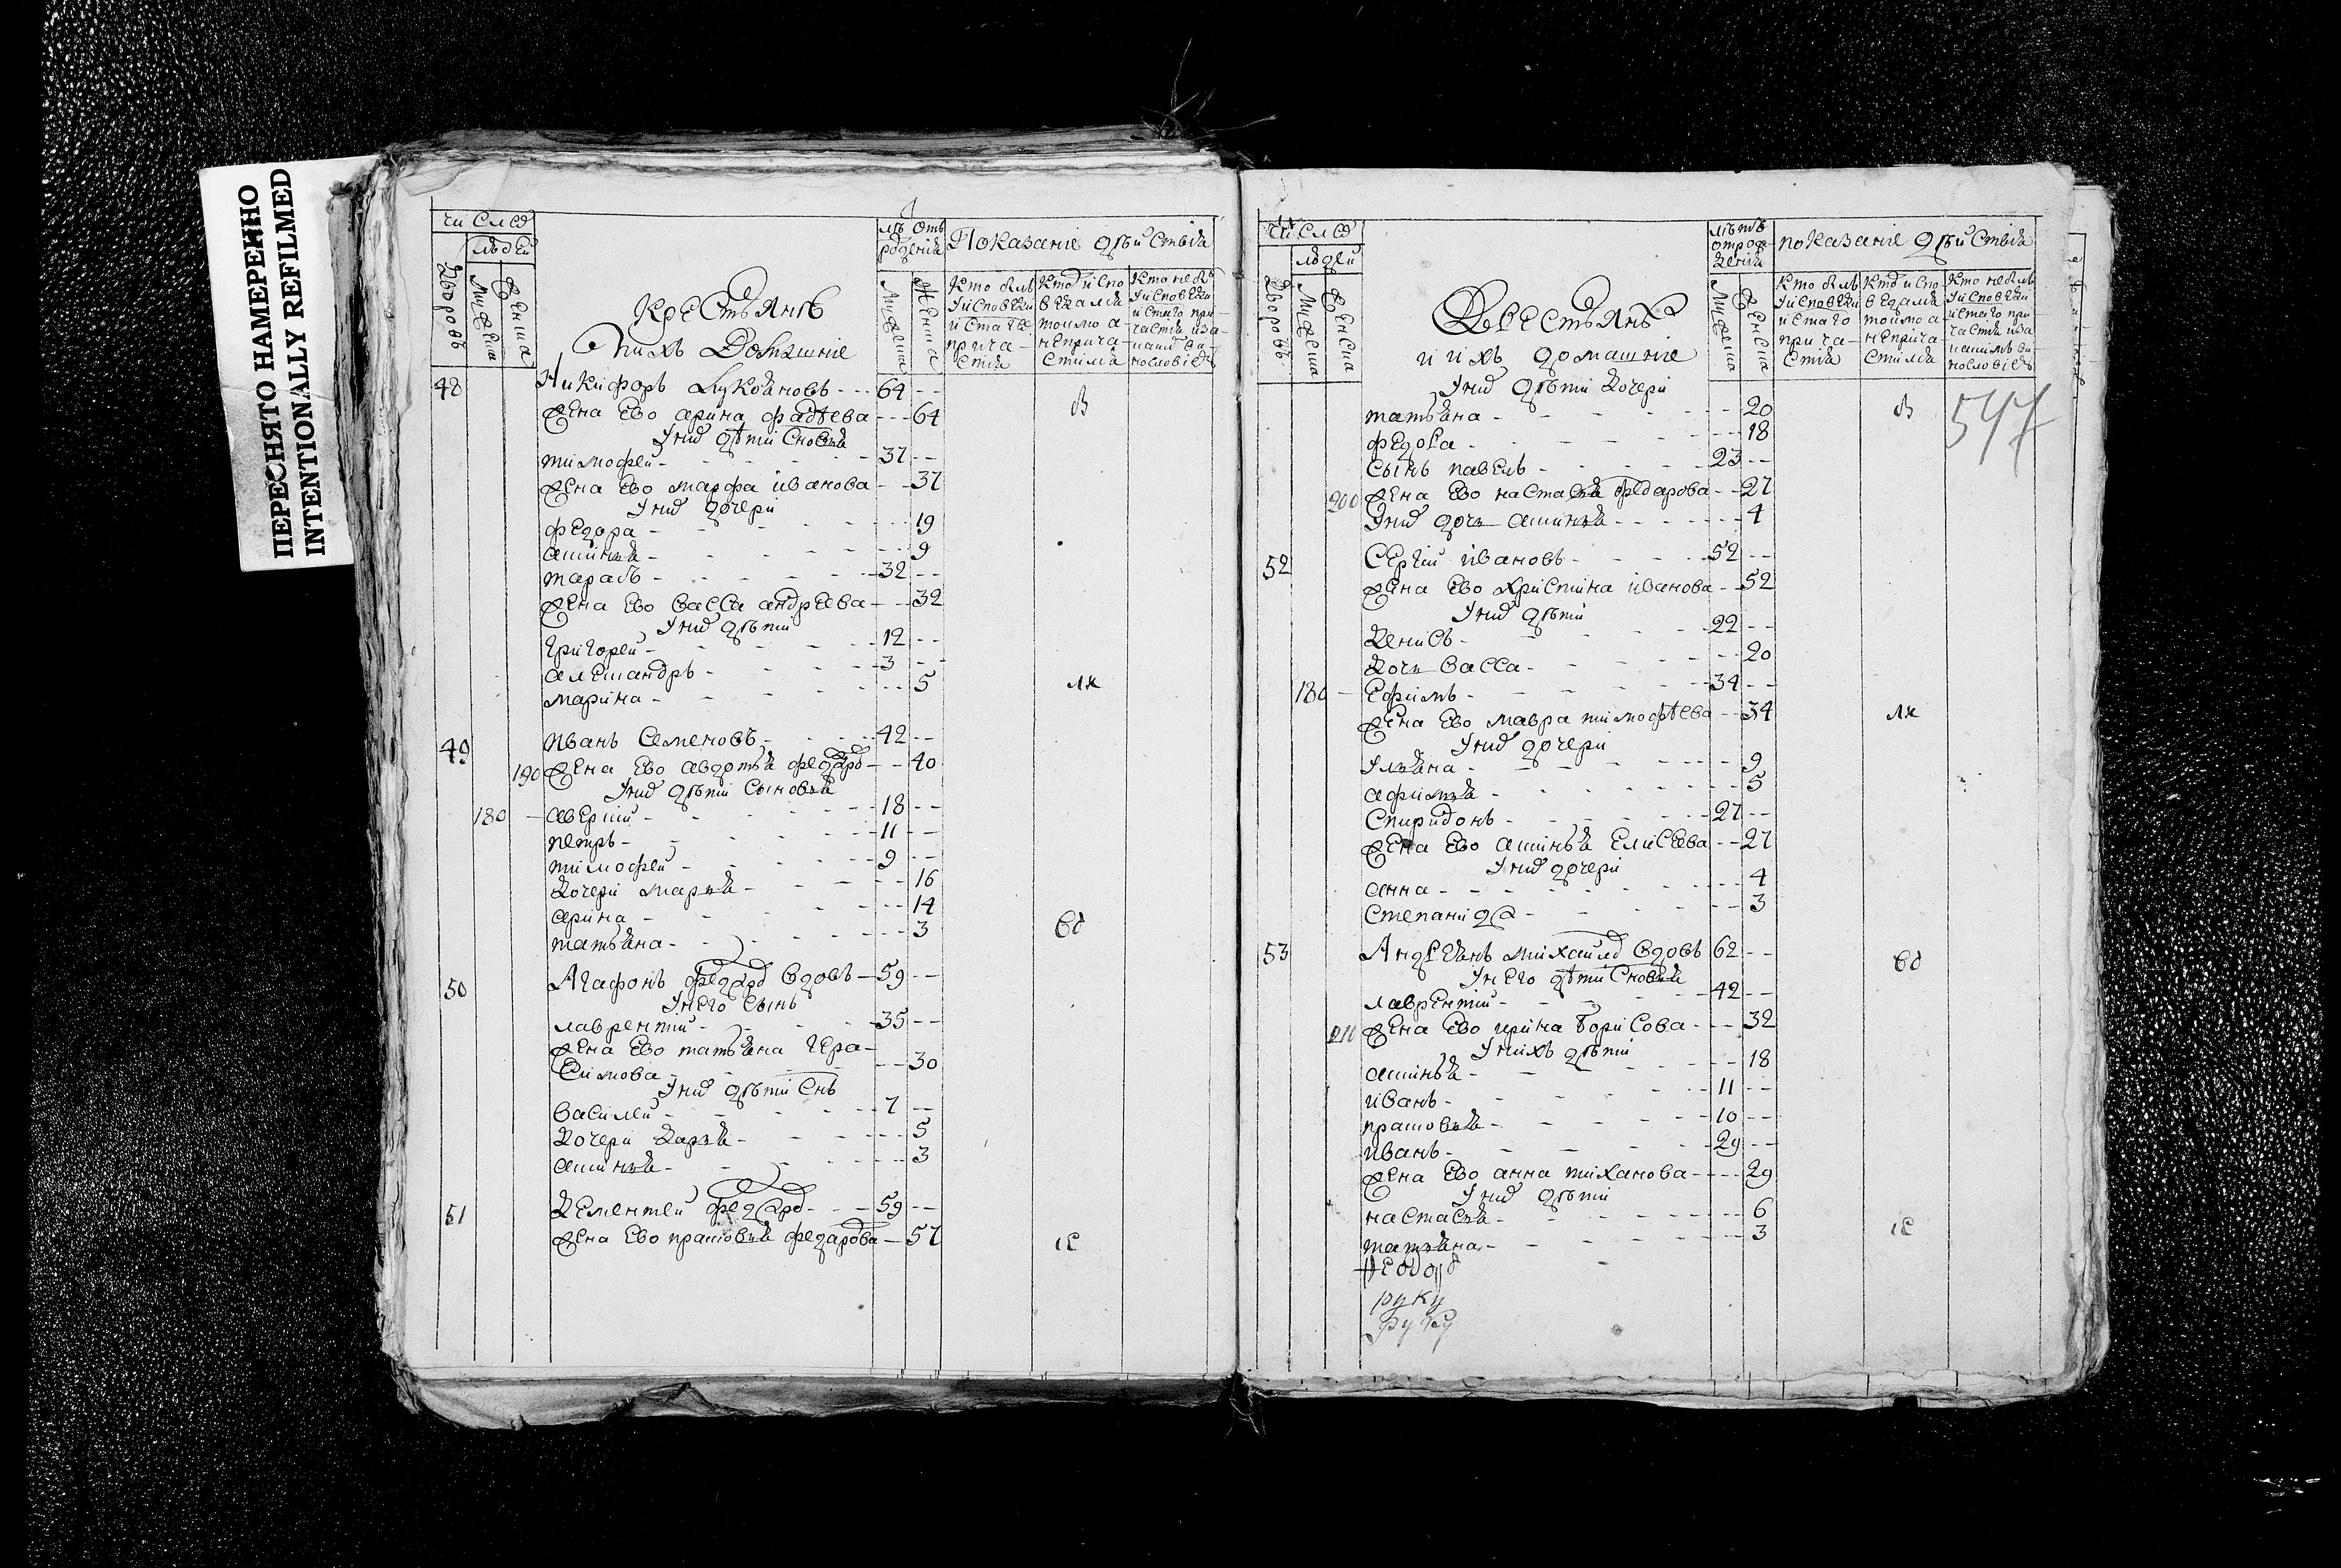 ПЕРЕСНЯТО НАМЕРЕННО
INTENTIONALLY REFILMED
число
людей
дворовъ
мужеска
женска
Крестьянѣ
и ихъ Домашніе
лѣ отъ
рожденія
мужеска
женска
Показаніе дѣйства
кто былъ
у исповѣди
и стаго
прича-
стія
кто испо
ведался
токмо а
неприча-
стился
кто небылъ
у исповѣди
и стаго при
частія иза
какимъ ви-
нословіемъ
48 Никифоръ Лукояновъ 64
жена Ево арина фадѣева 64
У них дѣти Сновья
тимофеи 37
жена Ево марфа иванова 37
У них дочери
федора 19
аксинья 9
тарасъ 32
жена Ево васса андрѣева 32
У них дѣти
григореи 12
александръ 3
марина 5
49 иванъ Семеновъ 42
190 жена Ево авдотья федаро 40
У них дѣти Сыновья
180 аверкии 18
петръ 11
тимофеи 9
дочери марья 16
арина 14
татьяна 3
50 Агафонъ федаро вдовъ 59
У него Сынъ
лаврентии 35
жена Ево татьяна гера-
симова 30
У них дѣти Снъ
василеи 7
дочери дарья 5
аксинья 3
51 дементеи федаро 59
жена Ево прасковья федарова 57
число
людей
дворовъ
мужеска
женска
Крестьянѣ
и ихъ домашніе
лѣтъ
отрож
денія
мужеска
женска
показаніе дѣйства
кто былъ
у исповѣди
и стаго
прича-
стія
кто испо
ведался
токмо а
неприча-
стился
кто небылъ
у исповѣди
и стаго при
частія иза
какимъ ви-
нословіемъ
547
У них дѣти дочери
татьяна 20
федора 18
сынъ павелъ 23
200 жена Ево настасья федарова 27
У них дочь аксинья 4
52 Сергіи ивановъ 52
жена Ево христина иванова 52
У них дѣти
денисъ 22
дочь васса 20
Ефимъ 34
жена Ево мавра тимофѣева 34
У них дочери
ульяна 9
афимья 5
Спиридонъ 27
жена Ево аксинья Елисѣева 27
У них дочери
анна 4
степанида 3
53 Андреянъ михаило вдовъ 62
У него дѣти Сновья
лаврентии 42
210 жена Ево ирина борисова 32
У нихъ дѣти
аксинья 18
иванъ 11
прасковья 10
иванъ 29
жена Ево анна тиханова 29
У них дѣти
настасья 6
татьяна 3
руку
руку